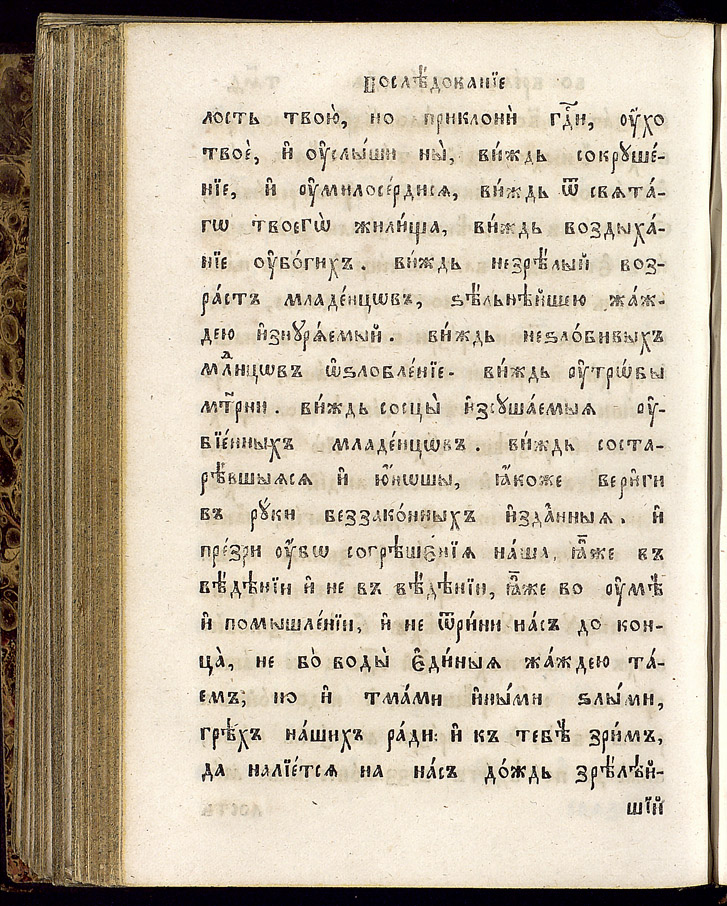 Послѣ́дованїе
лость твою̀, но приклонѝ гдⷭ҇и, оу҆́хо
твоѐ, и҆ оу҆слы́ши ны̀, ви́ждь сокрꙋше́-
нїе, и҆ оу҆милосе́рдисѧ, ви́ждь ѿ свѧта́-
гѡ твоегѡ̀ жили́ща, ви́ждь воздыха́-
нїе оу҆бо́гихъ. ви́ждь незрѣ́лый воз-
ра́стъ младе́нцѡвъ, ѕѣ́льнѣйшею жа́ж-
дею и҆знꙋрѧ́емый. ви́ждь неѕло́бивыхъ
млⷣнцѡвъ ѡ҆ѕлобле́нїе. ви́ждь оу҆трѡ́бы
мт҃рни. ви́ждь сосцы̀ и҆зсꙋша́емыѧ оу҆-
бїе́нныхъ младе́нцѡвъ. ви́ждь соста-
рѣ́вшыѧсѧ и҆ ю҆́нѡшы, ꙗ҆́коже вери̑ги
въ рꙋ́ки беззако́нныхъ и҆зда̑нныѧ. и҆
пре́зри оу҆́бѡ согрѣшє́нїѧ на́ша, ꙗ҆̀же въ
вѣ́дѣнїи и҆ не въ вѣ́дѣнїи, ꙗ҆̀же во оу҆мѣ̀
и҆ помышле́нїи, и҆ не ѿри́ни на́съ до кон-
ца̀, не бо̀ воды̀ є҆ди́ныѧ жа́ждею та́-
емъ; но и҆ тма́ми и҆ны́ми ѕлы́ми,
грѣ̑хъ на́шихъ ра́ди: и҆ къ тебѣ̀ зри́мъ,
да налїе́тсѧ на на́съ до́ждь зрѣлѣ́й-
шїй